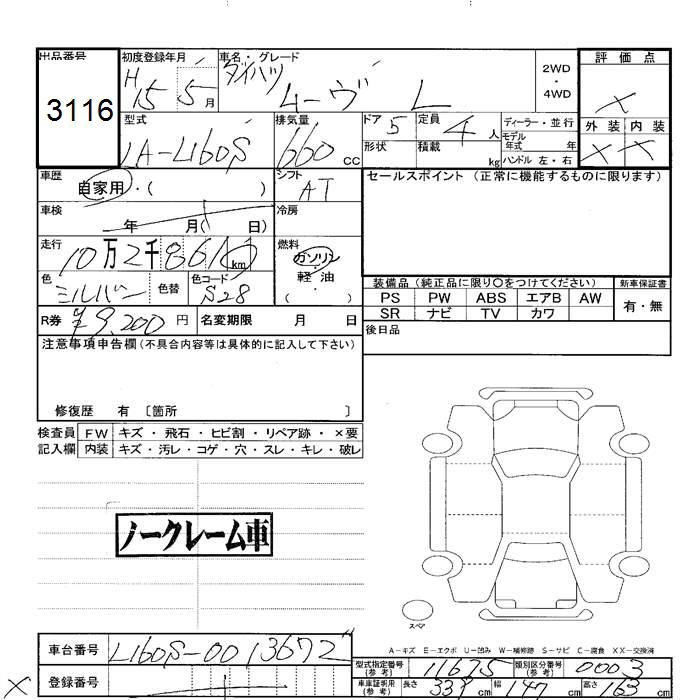 出品番号
3116
初度登録年月
H15 5月
車名・グレード
ダイハツ
ムーヴ L
2WD
・
4WD
評価点
X
外装 内装
X X
型式
LA-L160S
排気量
660 cc
ドア 5
形状
定員 4人
積載 kg
ディーラー・並行
モデル
年式 年
ハンドル 左・右
車歴
自家用・( )
シフト
AT
セールスポイント (正常に機能するものに限ります)
車検
年 月( 日)
冷房
走行
10万2千861 km
燃料
ガソリン
軽・油
・( )
色
シルバー
色替
色コード
S28
装備品(純正品に限り〇をつけてください)
新車保証書
PS PW ABS エアB AW
SR ナビ TV カワ
有・無
R券 ¥9,200 円
名変期限 月 日
後日品
注意事項申告欄(不具合内容等は具体的に記入して下さい)
修復歴 有 〔箇所 〕
検査員 FW キズ・飛石・ヒビ割・リペア跡・×要
記入欄 内装 キズ・汚レ・コゲ・穴・スレ・キレ・破レ
ノークレーム車
スペア
A-キズ E-エクボ U-凹み W-補修跡 S-サビ C-腐食 XX-交換済
車台番号
L160S-0013672
型式指定番号
(参考)
11675
類別区分番号
(参考)
0003
X
登録番号
車庫証明用
(参考)
長さ 339 cm
幅 147 cm
高さ 163 cm